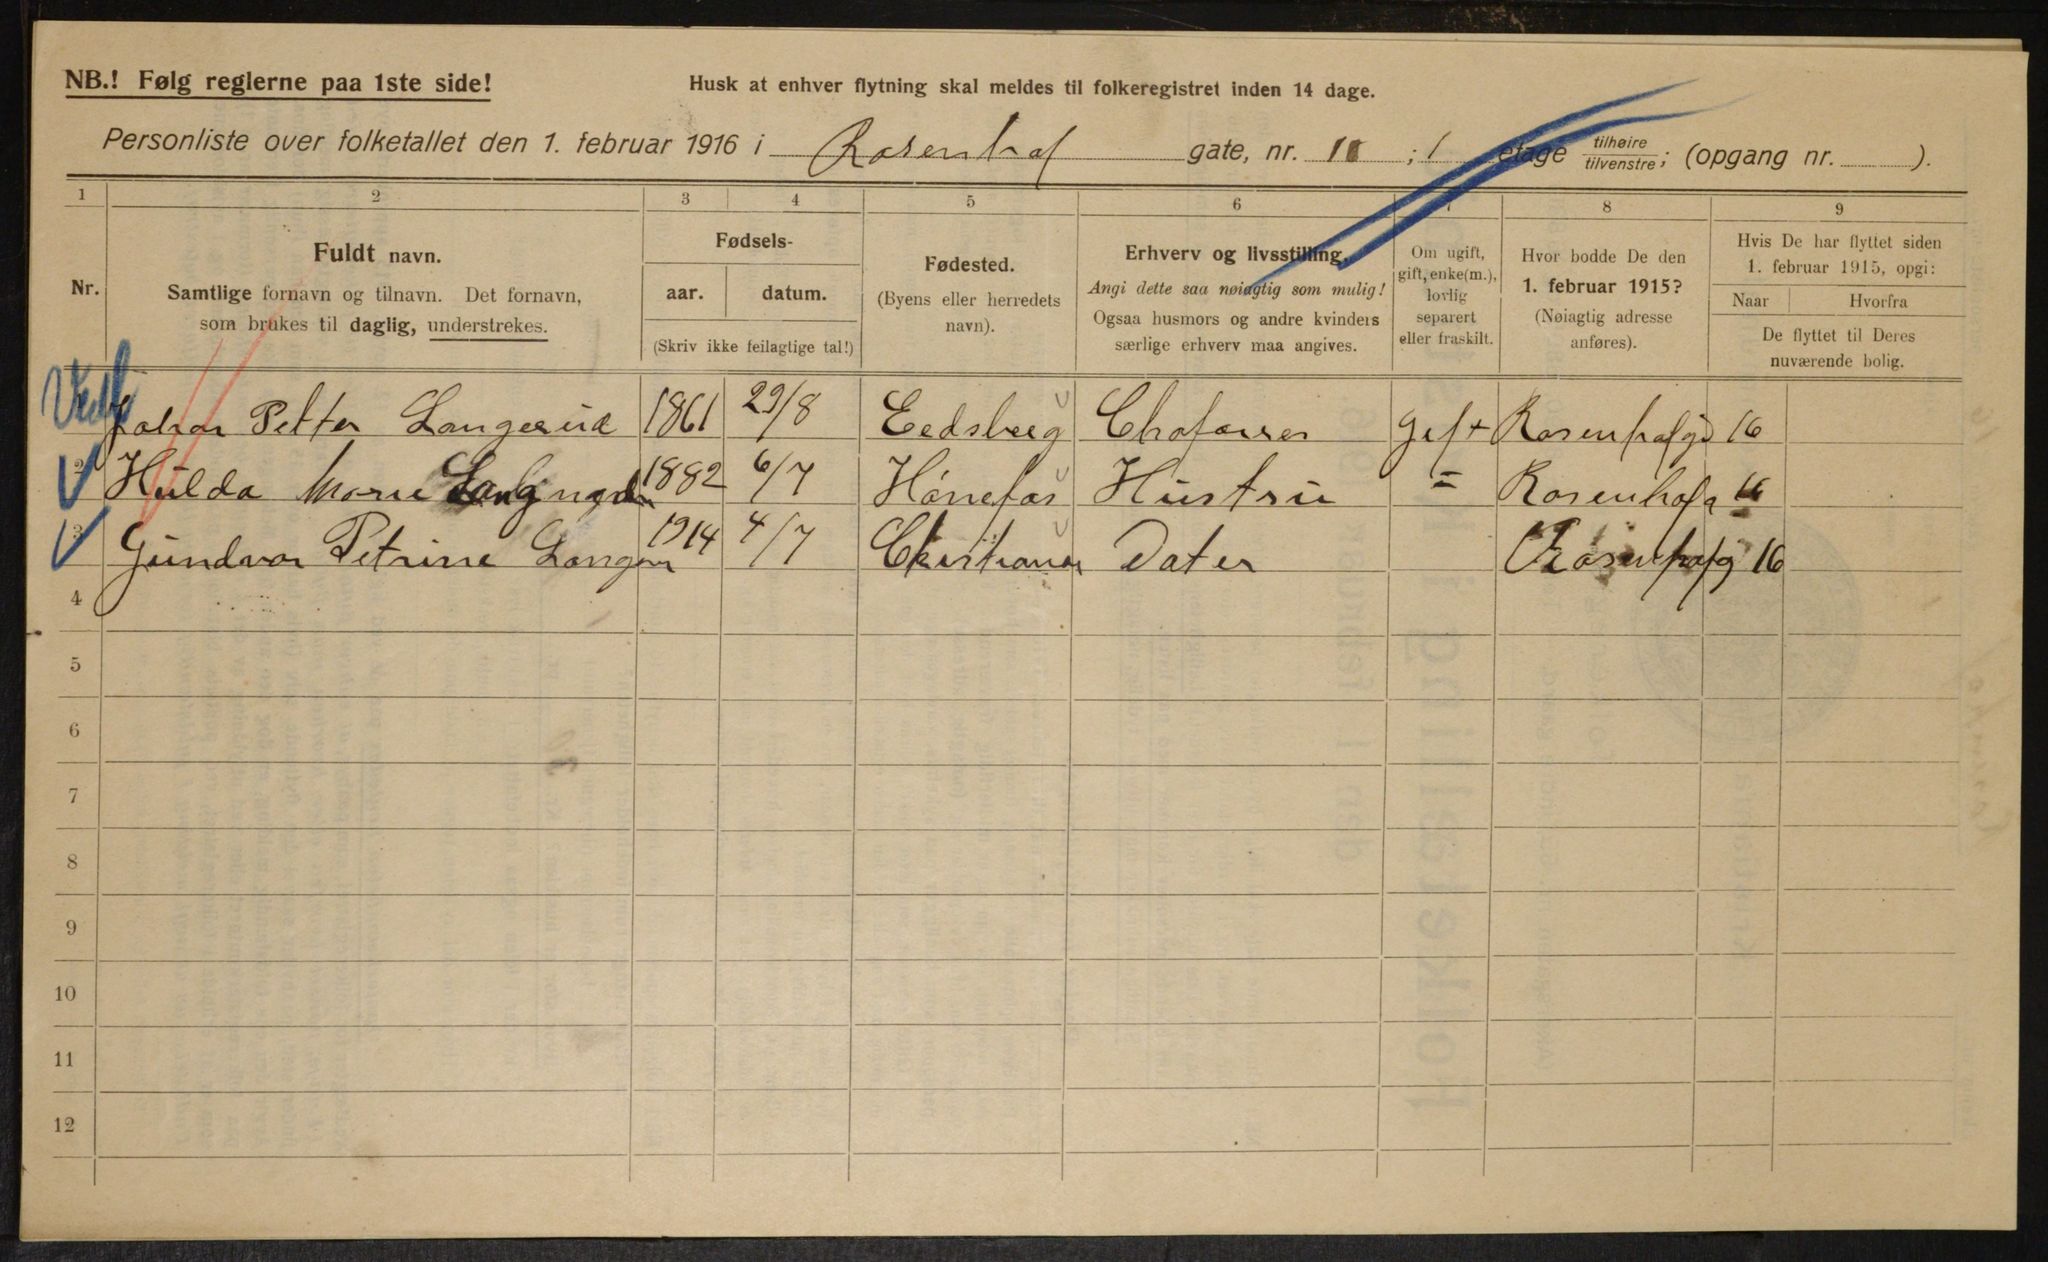 NB.! Følg reglerne paa 1ste side!
Husk at enhver flytning skal meldes til folkeregistret inden 14 dage.
Personliste over folketallet den 1. februar 1916 i Rosenhof gate, nr. ; 1 etage tilhøire/tilvenstre; (opgang nr. ).
1 2 3 4 5 6 7 8 9
Nr.
Fuldt navn.
Samtlige fornavn og tilnavn. Det fornavn,
som brukes til daglig, understrekes.
Fødsels-
aar. datum.
(Skriv ikke feilagtige tal!)
Fødested.
(Byens eller herredets
navn).
Erhverv og livsstilling.
Angi dette saa nøiagtig som mulig!
Ogsaa husmors og andre kvinders
særlige erhverv maa angives.
Om ugift,
gift, enke(m.),
lovlig
separert
eller fraskilt.
Hvor bodde De den
1. februar 1915?
(Nøiagtig adresse
anføres).
Hvis De har flyttet siden
1. februar 1915, opgi:
Naar Hvorfra
De flyttet til Deres
nuværende bolig.
Johan Petter Langerud 1861 29/8 Eedsberg Gift Rosenhofgd 16
2 Hulda Marie 1882 6/7 Hónefos Hustru = Rosenhofg 16
3 Gundvor Petrine Langeru 1914 4/7 Christiania Dater Rosenhofg 16
4
5
6
7
8
9
10
11
12